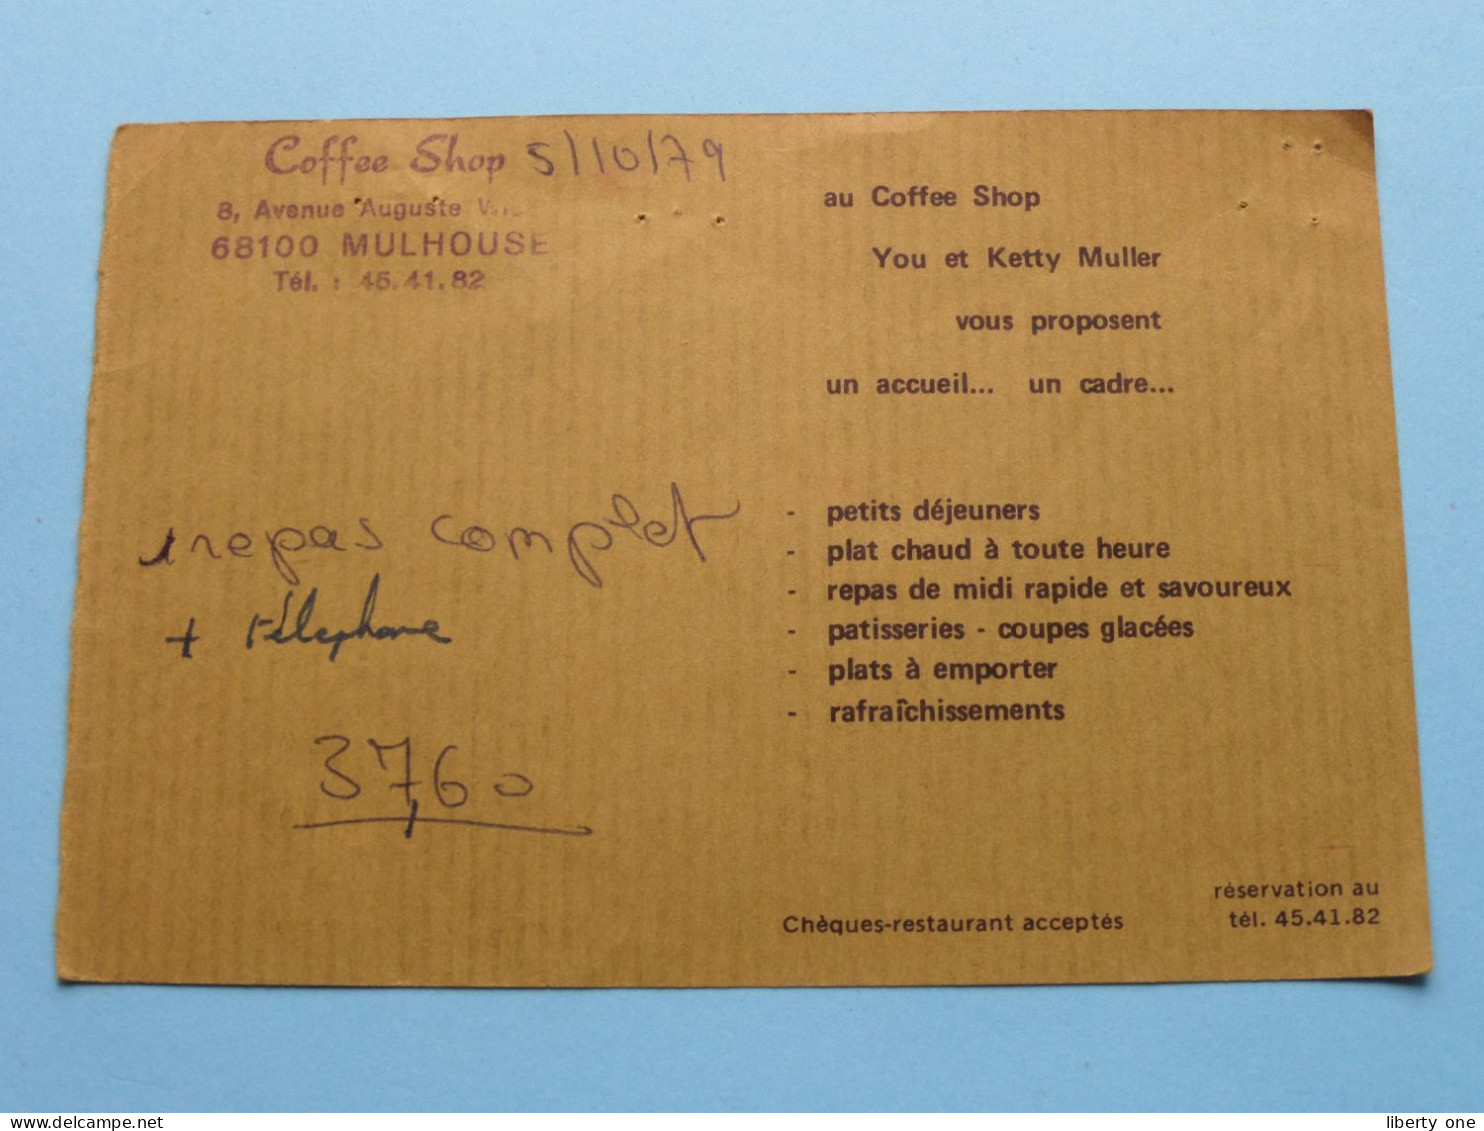 Coffee Shop 5/10/79
8, Avenue Auguste
68100 MULHOUSE
Tél. : 45.41.82
1 repas complet
+ téléphone
37,60
au Coffee Shop
You et Ketty Muller
vous proposent
un accueil... un cadre...
- petits déjeuners
- plat chaud à toute heure
- repas de midi rapide et savoureux
- patisseries - coupes glacées
- plats à emporter
- rafraîchissements
Chèques-restaurant acceptés
réservation au
tél. 45.41.82
www.delcampe.net
liberty one